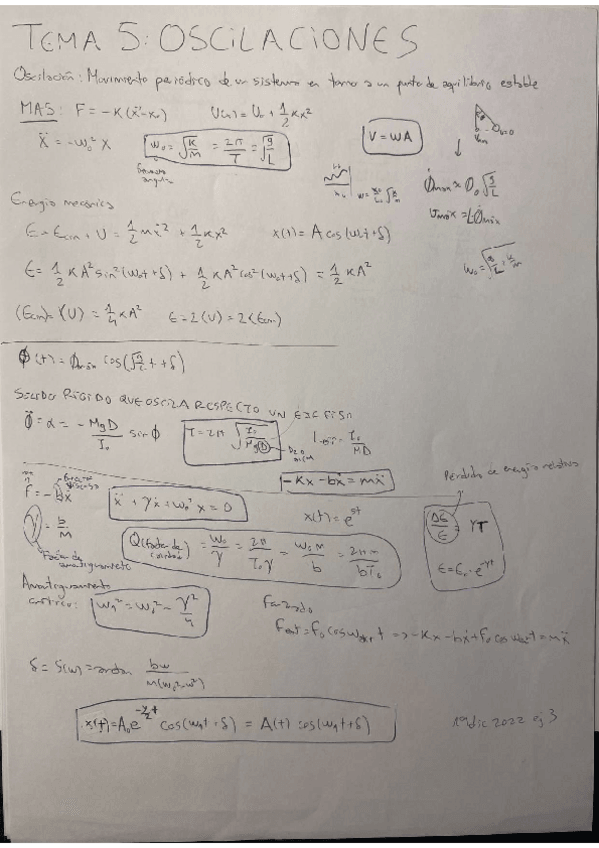 TEMA 5: OSCILACIONES
Oscilación: Movimiento periódico de un sistema en torno a un punto de equilibrio estable
MAS: F = -K(x-x₀) U(x) = U₀ + 1/2 Kx²
ẍ = -ω₀² x ω₀ = √(K/M) = 2π/T = √(g/L) V = ωA
angular
Φ̇máx = Φ₀ √(g/L)
Vmáx = LΦ̇máx
Energía mecánica
E = Ecin + U = 1/2 mẋ² + 1/2 Kx² x(t) = A cos(ω₀t + δ)
E = 1/2 KA² sin²(ω₀t + δ) + 1/2 KA² cos²(ω₀t + δ) = 1/2 KA²
⟨Ecin⟩ = ⟨U⟩ = 1/4 KA² E = 2⟨U⟩ = 2⟨Ecin⟩
Φ(t) = Φmáx cos(√(g/L) t + δ)
SÓLIDO RÍGIDO QUE OSCILA RESPECTO UN EJE FIJO
Φ̈ = α = -MgD/I₀ sin Φ T = 2π √(I₀/MgD) = I₀/MD
-Kx - bẋ = mẍ Pérdida de energía relativa
F = -bẋ ẍ + γẋ + ω₀² x = 0 x(t) = e^st ΔE/E = γT
γ = b/M Q (factor de calidad) = ω₀/γ = 2π/T₀γ = ω₀M/b = 2πm/bT₀ E = E₀ · e^-γt
Factor de amortiguamiento
Amortiguamiento
crítico: ω₁² = ω₀² - γ²/4 Forzado
Fext = F₀ cos ωext t => -Kx - bẋ + F₀ cos ωext t = mẍ
δ = δ(ω) = arctan bω/m(ω₀²-ω²)
x(t) = A₀e^-γ/2 t cos(ω₁t + δ) = A(t) cos(ω₁t + δ) 19 dic 2022 ej 3